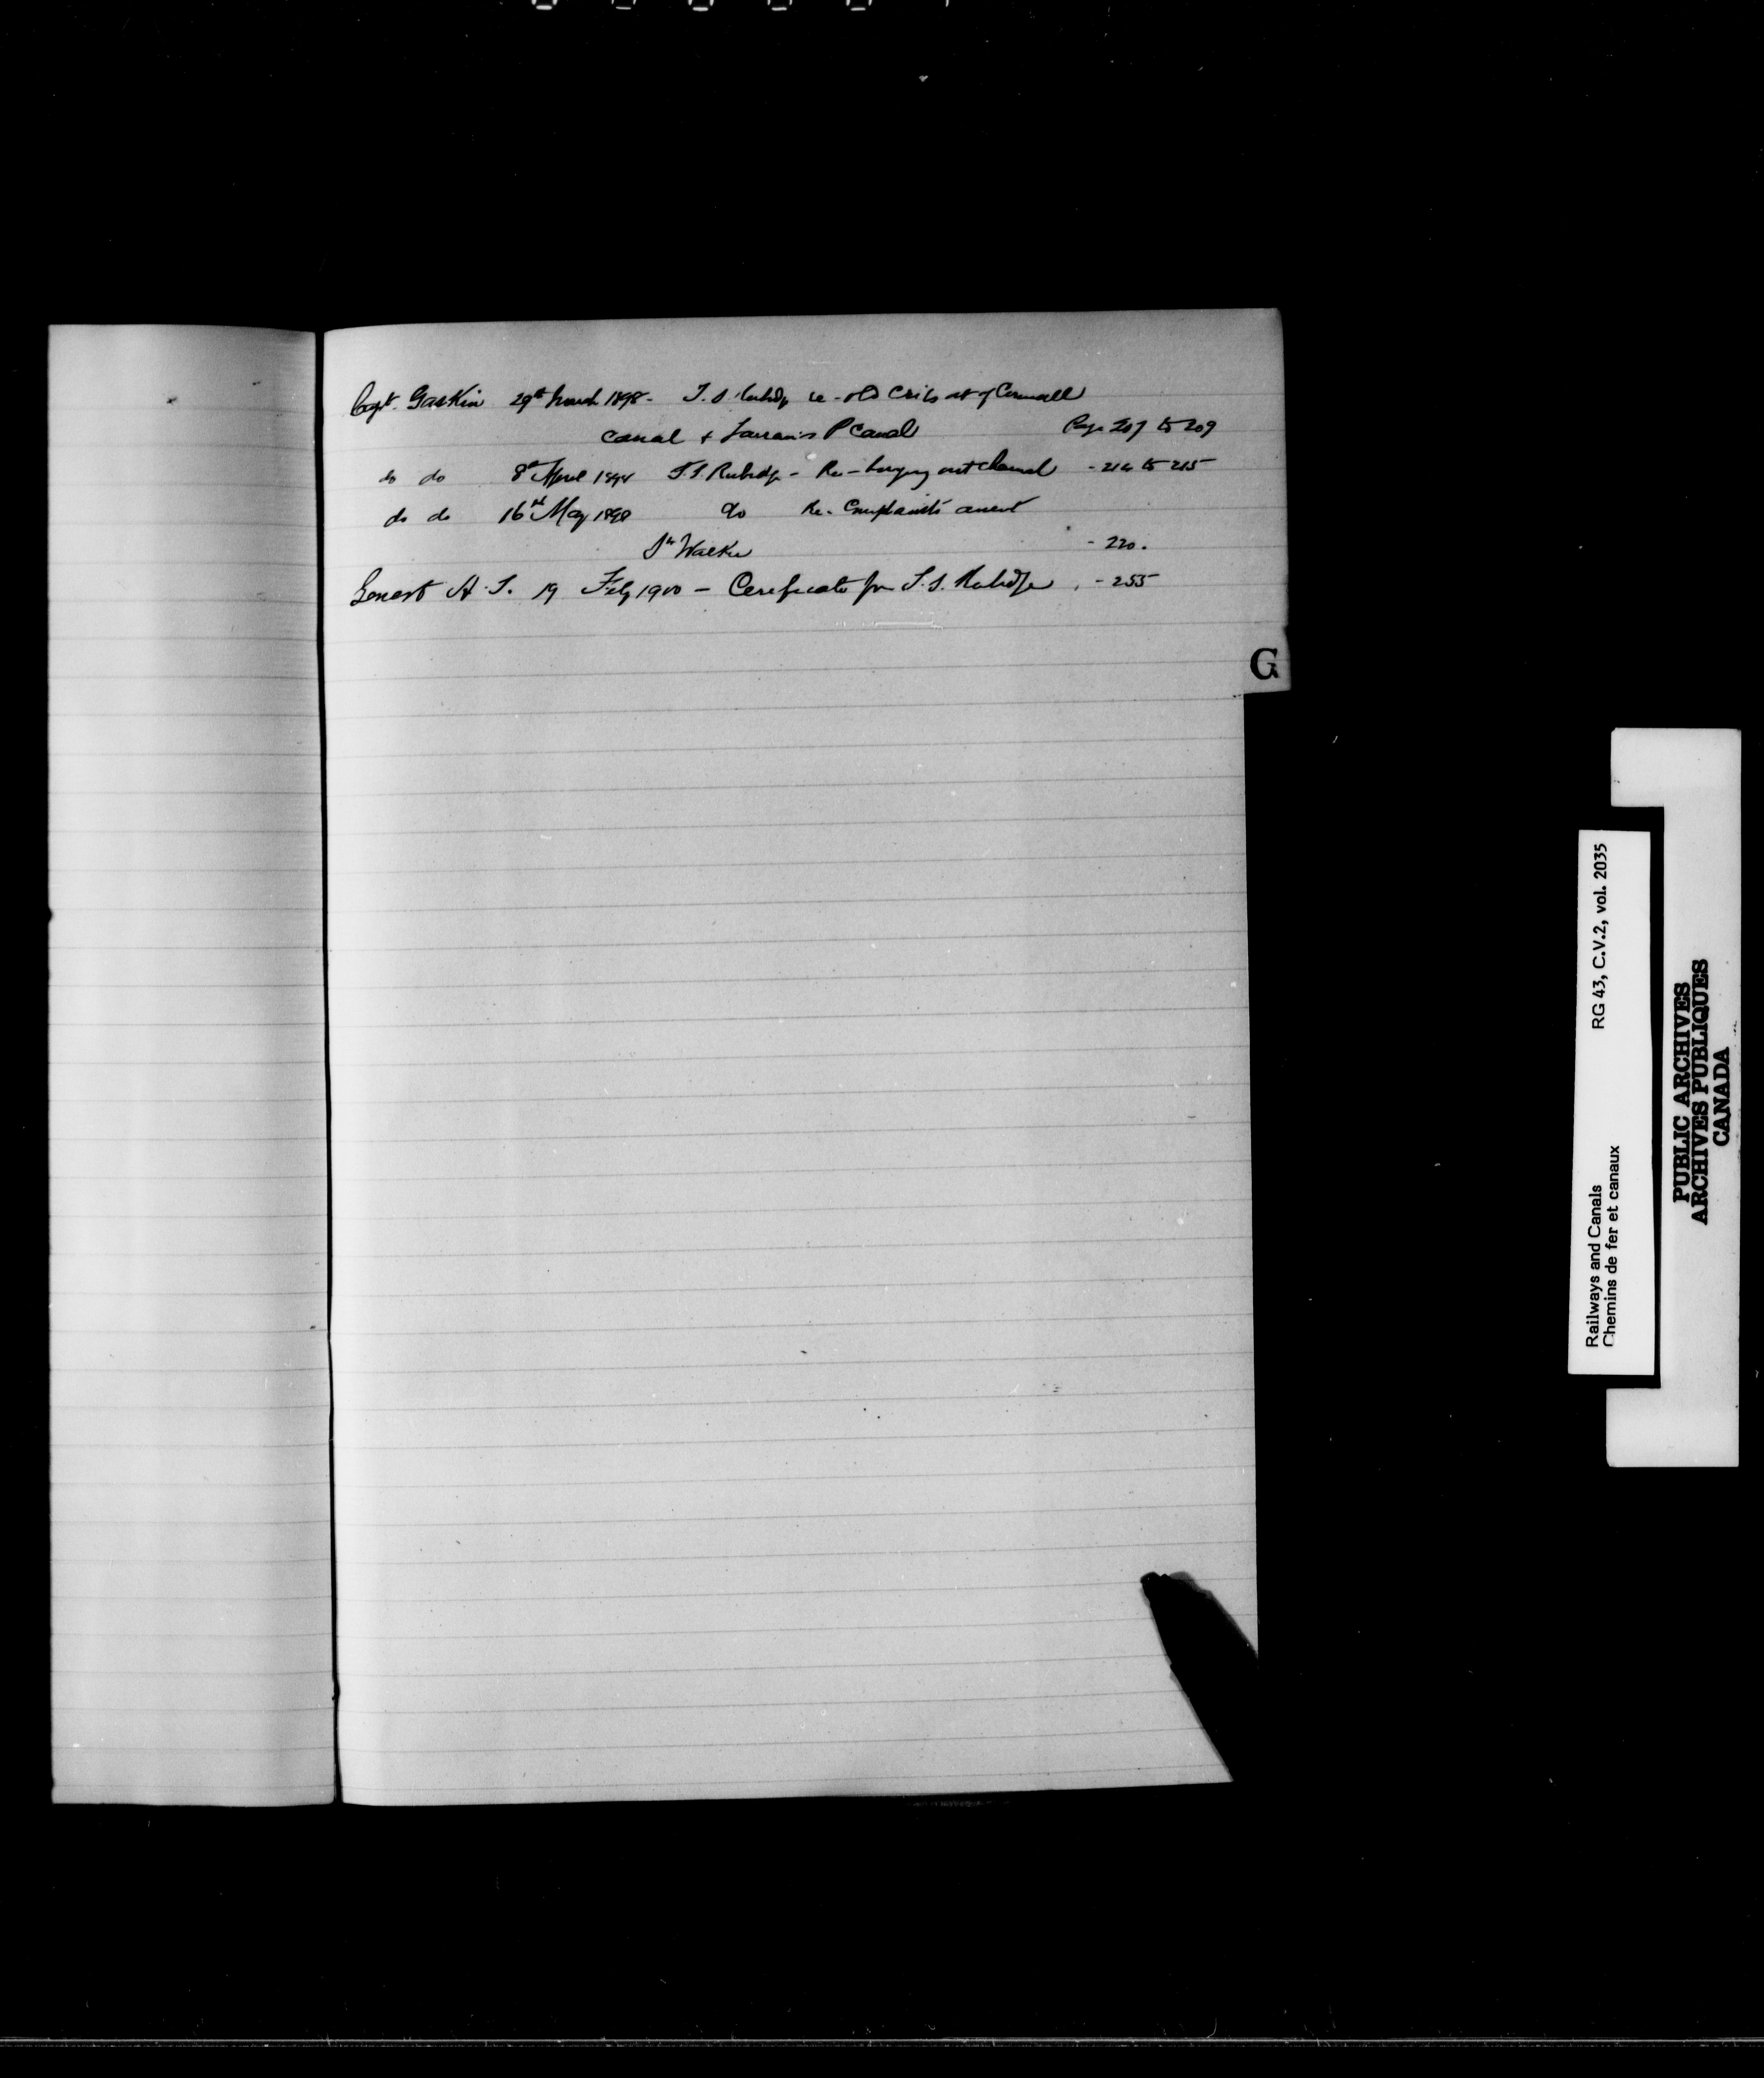 Capt. Gaskin 29th March 1898 - T. S. Rubidge re - old Cribs at of Cornwall
Canal & Farran's P Canal Page 207 to 209
do do 8th April 1898 T. S. Rubidge - Re - buoying out channel - 214 to 215
do do 16th May 1898 do Re - Complaints anent
Str Walker - 220.
Genest A. J. 19 Feby 1900 - Cerificate for T. S. Rubidge - 255
G
RG 43, C.V.2, vol. 2035
Railways and Canals
Chemins de fer et canaux
PUBLIC ARCHIVES
ARCHIVES PUBLIQUES
CANADA